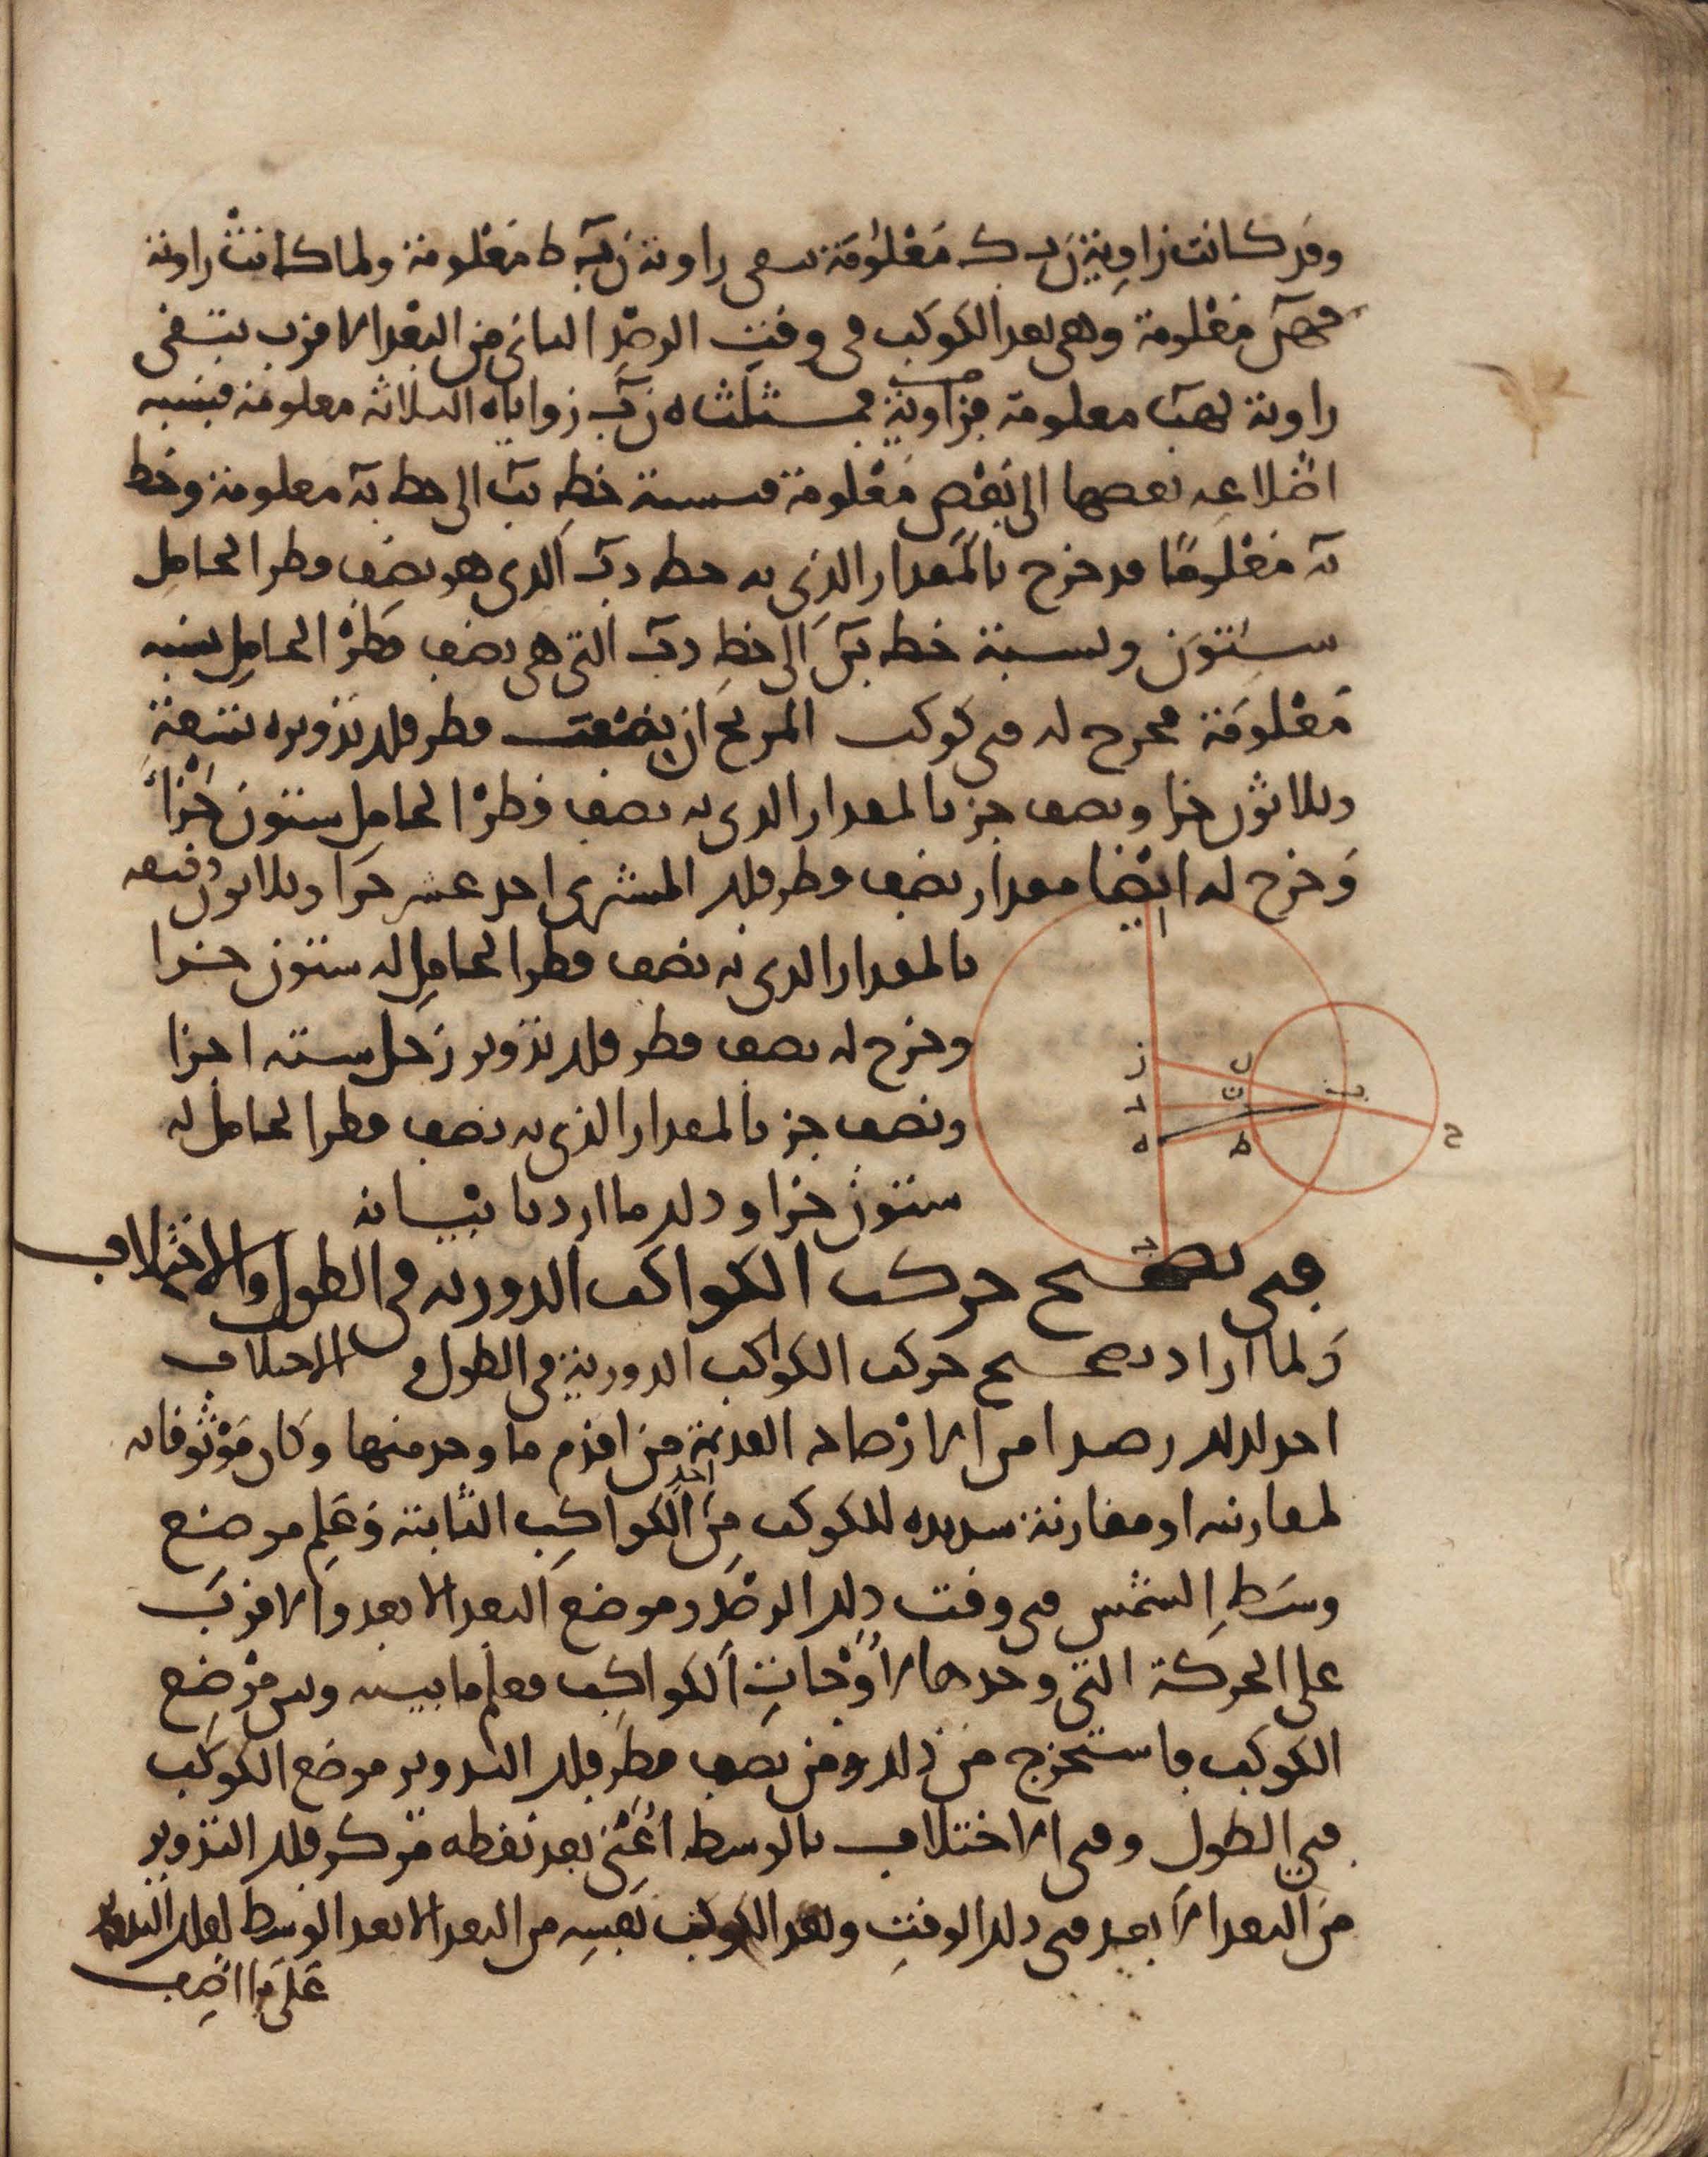 وقد كانت زاوية زبك معلومة تبقى زاوية زبه ط معلومة ولما كانت زاوية
معلومة وهي بعد الكوكب في وقت الرصد الثاني من البعد الاقرب تبقى
زاوية معلومة فمثلث ه زب زواياه الثلاثة معلومة فنسبة
اضلاعه بعضها الى بعض معلومة فنسبة خط الى خط به معلومة وخط
به معلوما قد خرج بالمقدار الذي به خط دب الذي هو نصف قطر الحامل
ستون ونسبة خط الى خط دب التي هي نصف قطر الحامل نسبة
معلومة فخرج له في كوكب المريخ ان نصف قطر فلك تدويره تسعة
وثلاثون جزا ونصف جز بالمقدار الذي به نصف قطر الحامل ستون جزأ
وخرج له ايضا مقدار نصف قطر فلك المشتري احد عشر جزا وثلاثون دقيقه
بالمقدار الذي به نصف قطر الحامل له ستون جزا
وخرج له نصف قطر فلك تدوير زحل سته اجزا
ونصف جز بالمقدار الذي به نصف قطر الحامل له
ستون جزا وذلك ما اردنا بيانه
ا
ز
ل
ن
ب
د
ه
ط
ح
ج
في تصحيح حركت الكواكب الدوريه في الطول والاختلاف
ولما اراد تصحيح حركت الكواكب الدورية في الطول و الاختلاف
اخذ لذلك رصدا من الارصاد القديمة من اقدم ما وجد منها وكان موثوقا به
لمقارنه او مقارنة شديده للكوكب من احد الكواكب الثابتة وعلم موضع
وسط الشمس في وقت ذلك الرصد وموضع البعد الابعد والاقرب
على الحركة التي وجدها لاوجات الكواكب فعلم ما بينه وبين موضع
الكوكب فاستخرج من ذلك ومن نصف قطر فلك التدوير موضع الكوكب
في الطول وفي الاختلاف بالوسط اعني بعد نقطه مركز فلك التدوير
من البعد الابعد في ذلك الوقت وبعد الكوكب نفسه من البعد الابعد الوسط لفلك التدوير
على ما اصف